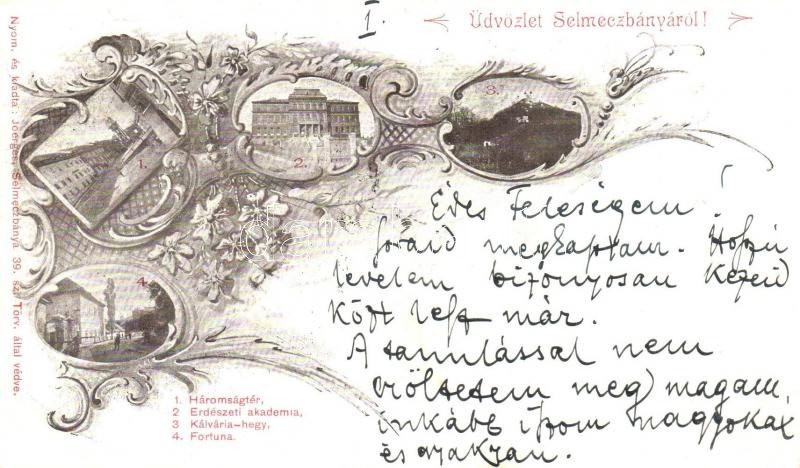 I.
Üdvözlet Selmeczbányáról!
Nyom. és kiadta: Joerges, Selmeczbánya 39. sz. Törv. által védve.
1.
2.
3.
4.
Édes Feleségem!
soraid megkaptam. Hosszú
levelem bizonyosan kezeid
közt lesz már.
A tanulással nem
erőltetem meg magam,
inkább iszom nagyokat
és gyakran.
1. Háromságtér,
2 Erdészeti akademia,
3 Kálvária-hegy,
4. Fortuna.